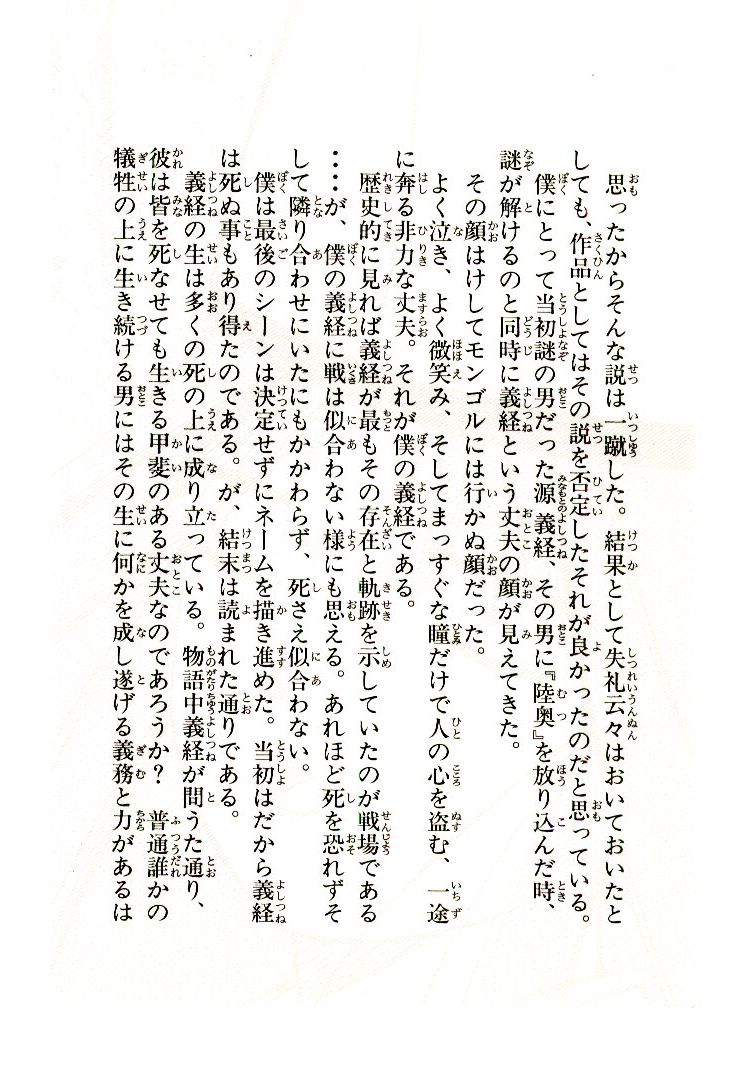 思ったからそんな説は一蹴した。結果として失礼云々はおいておいたと
しても、作品としてはその説を否定したそれが良かったのだと思っている。
僕にとって当初謎の男だった源義経、その男に『陸奥』を放り込んだ時、
謎が解けるのと同時に義経という丈夫の顔が見えてきた。
その顔はけしてモンゴルには行かぬ顔だった。
よく泣き、よく微笑み、そしてまっすぐな瞳だけで人の心を盗む、一途
に奔る非力な丈夫。それが僕の義経である。
歴史的に見れば義経が最もその存在と軌跡を示していたのが戦場である
‥‥が、僕の義経に戦は似合わない様にも思える。あれほど死を恐れずそ
して隣り合わせにいたにもかかわらず、死さえ似合わない。
僕は最後のシーンは決定せずにネームを描き進めた。当初はだから義経
は死ぬ事もあり得たのである。が、結末は読まれた通りである。
義経の生は多くの死の上に成り立っている。物語中義経が問うた通り、
彼は皆を死なせても生きる甲斐のある丈夫なのであろうか？　普通誰かの
犠牲の上に生き続ける男にはその生に何かを成し遂げる義務と力があるは